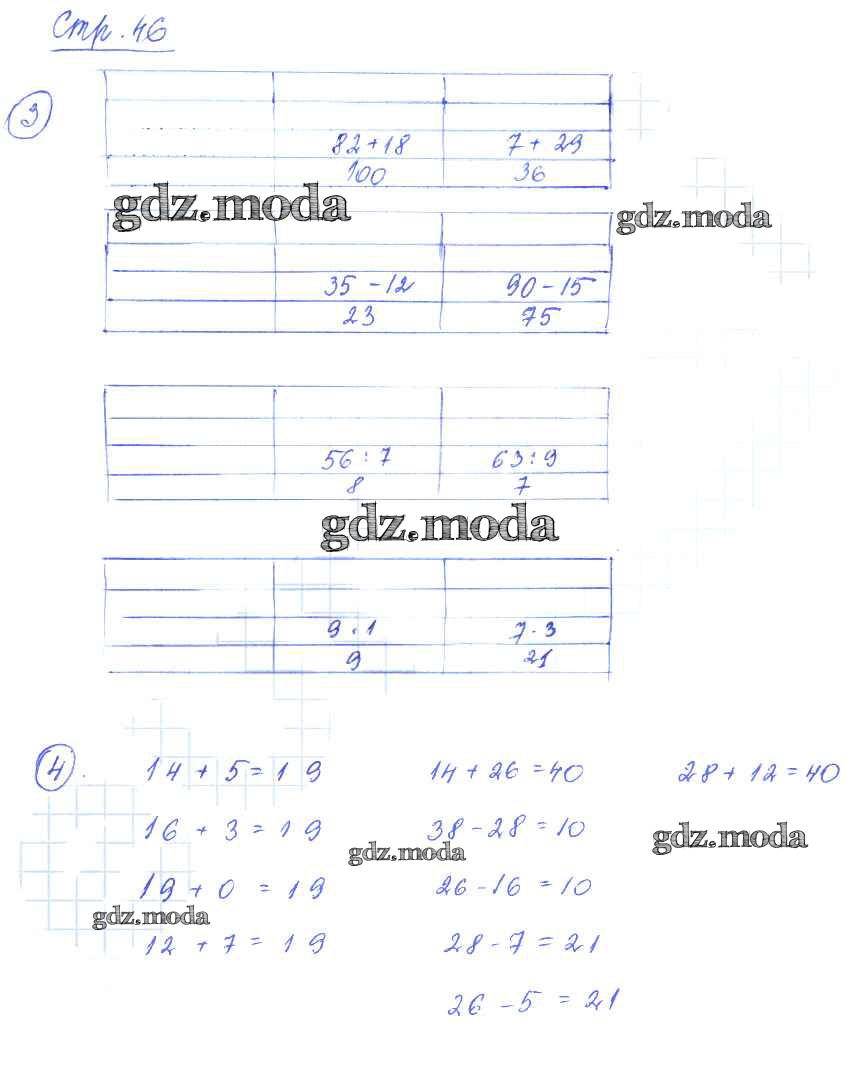 Стр. 46
3
82+18 7+29
100 36
gdz.moda gdz.moda
35-12 90-15
23 75
56:7 63:9
8 7
gdz.moda
9·1 7·3
9 21
4. 14+5=19 14+26=40 28+12=40
16+3=19 38-28=10
gdz.moda gdz.moda
19+0=19 26-16=10
gdz.moda
12+7=19 28-7=21
26-5=21